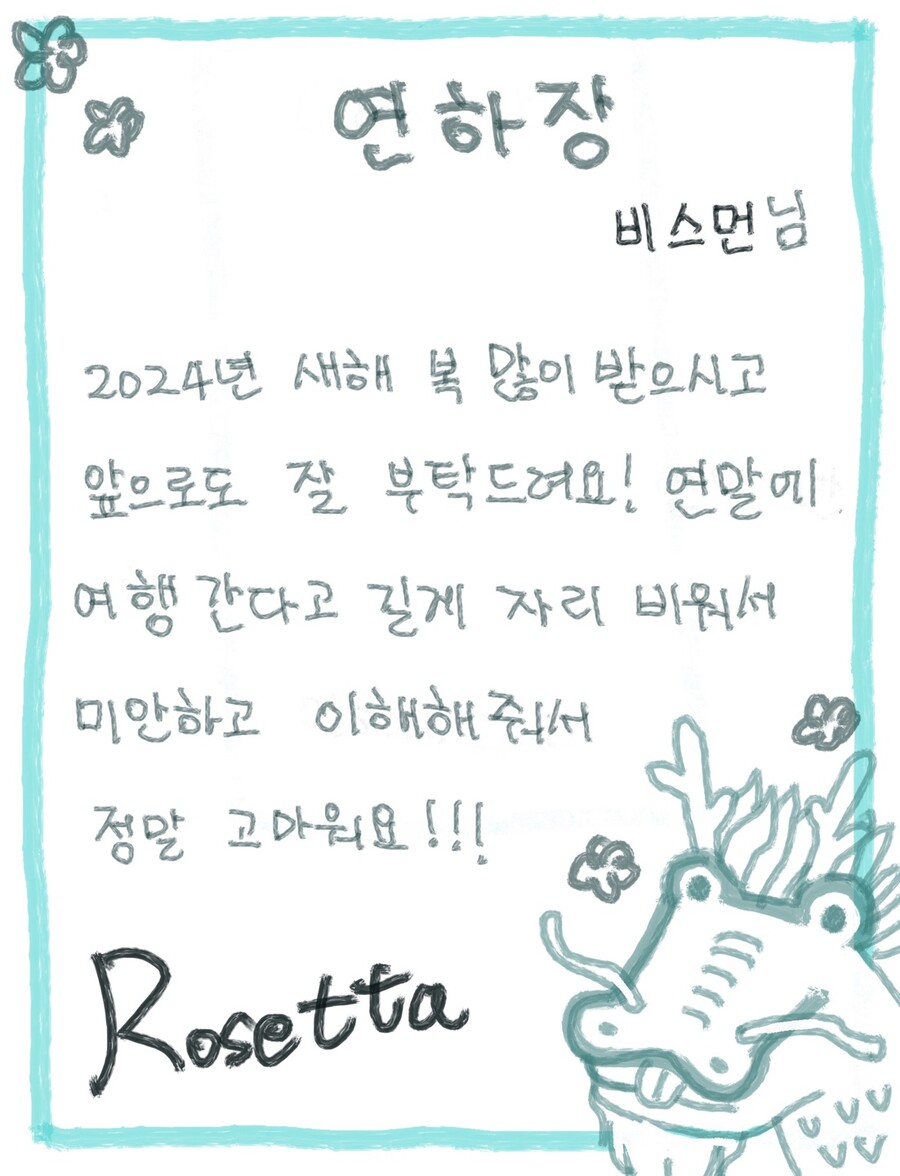 연하장
비스먼님
2024년 새해 복 많이 받으시고
앞으로도 잘 부탁드려요! 연말에
여행 간다고 길게 자리 비워서
미안하고 이해해줘서
정말 고마워요!!!
Rosetta